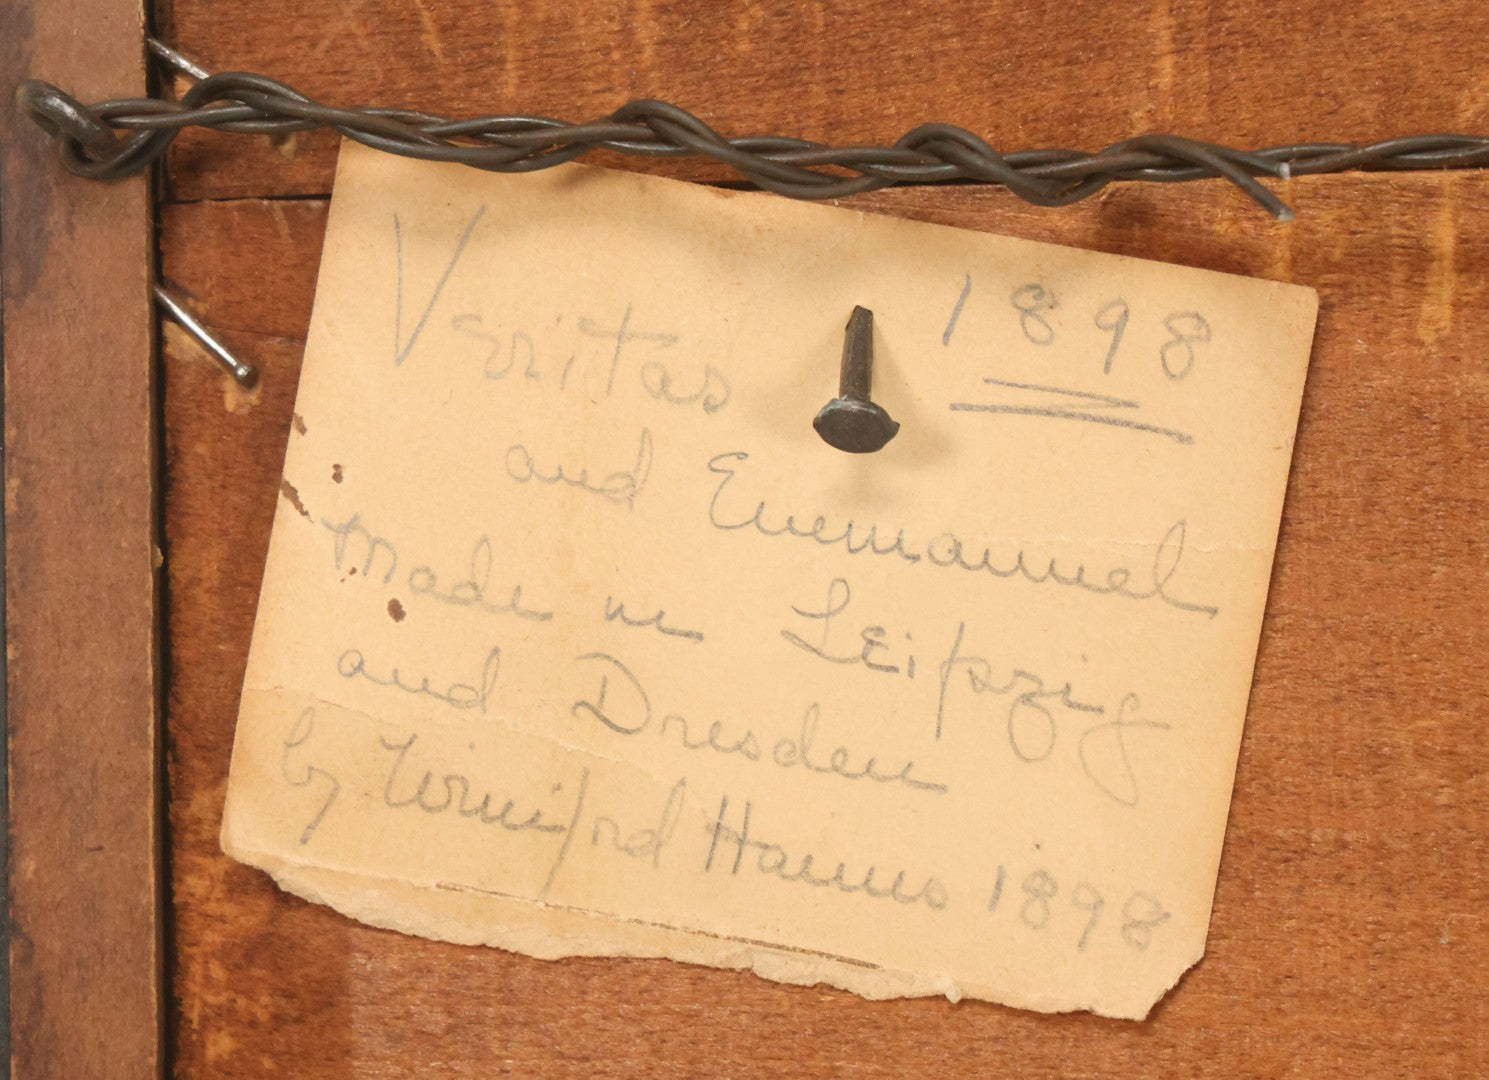 Veritas 1898
and Evemannel
Made in Leipzig
and Dresden
by Winifred Hanns 1898